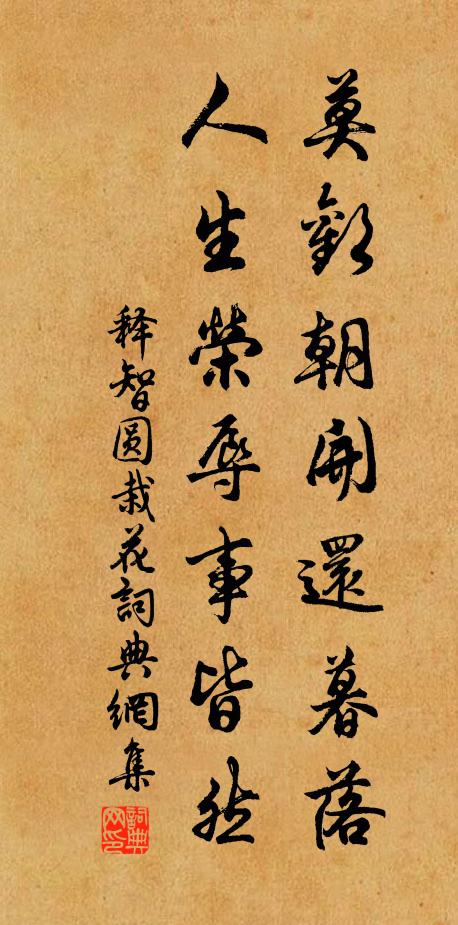 莫歎朝開還暮落
人生榮辱事皆然
釋智圓栽花詞典網集
詞典网印